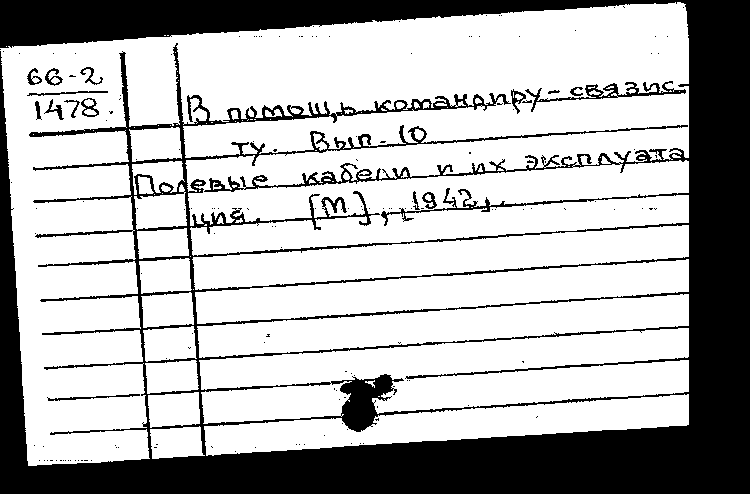 66-2
1478.
В помощь командиру-связис-
ту. Вып. 10
Полевые кабели и их эксплуата
ция. [М.], [1942].